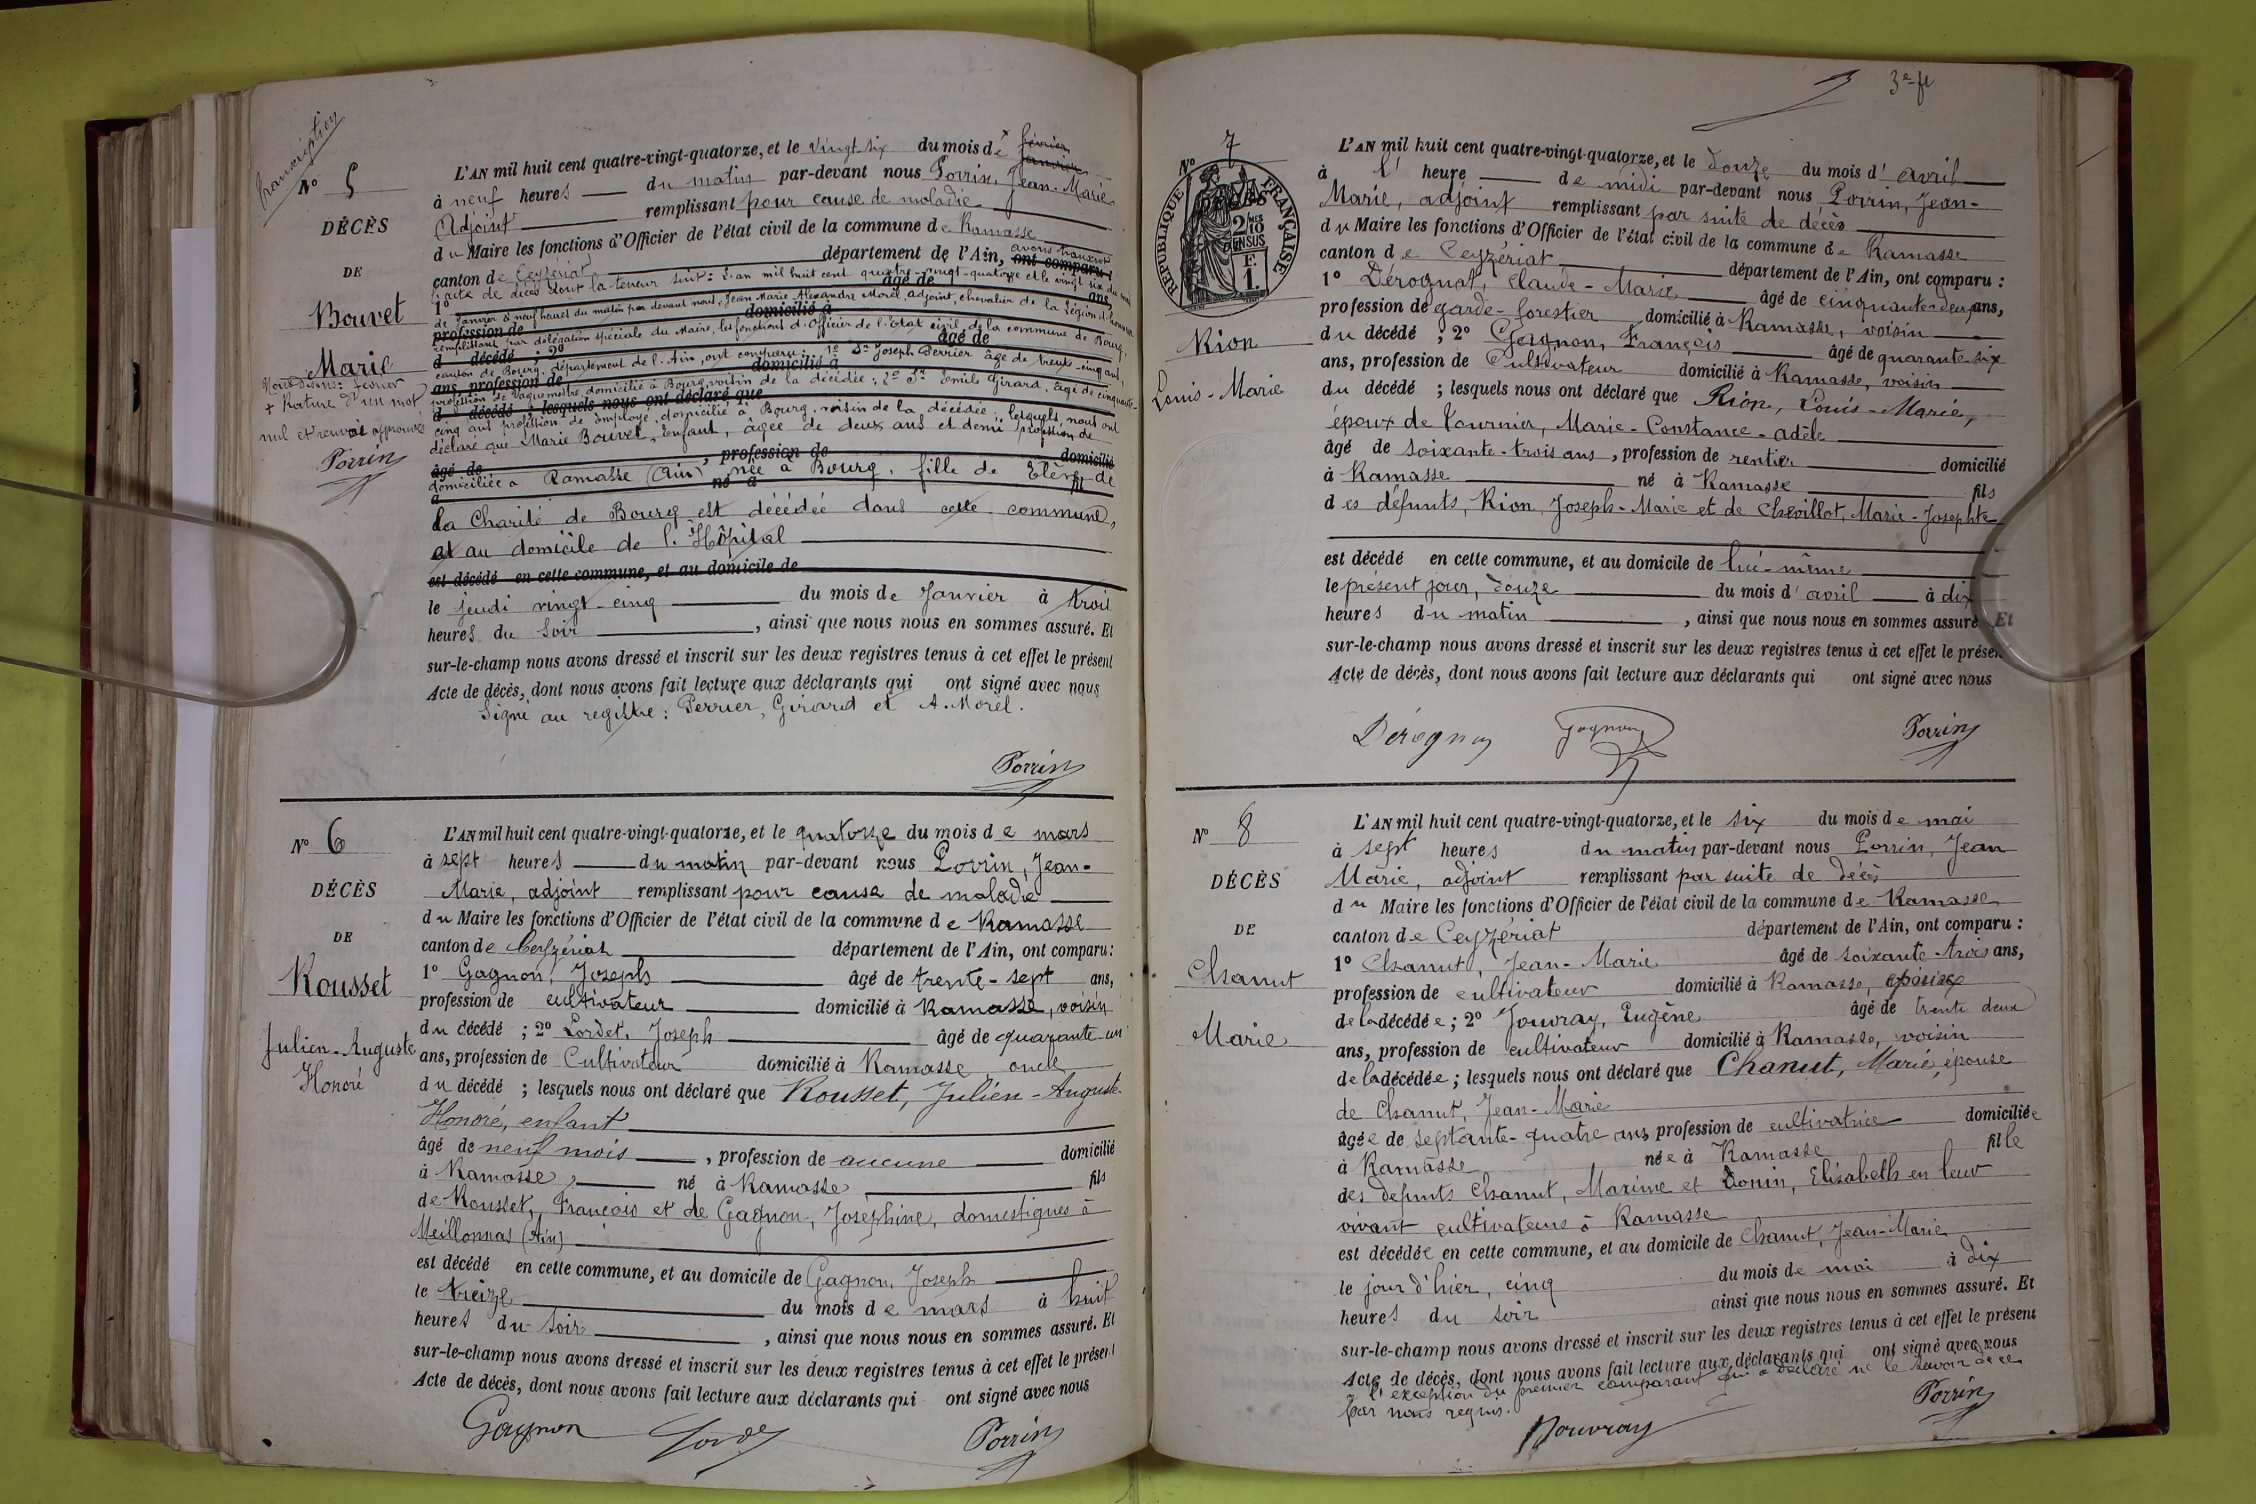 Transcription
Nº 5
DÉCÈS
DE
Bouvet
Marie
Nous disons: février
+ Rature d'un mot
nul et renvoi approuvé
Porrin
L'AN mil huit cent quatre-vingt-quatorze, et le vingt-six du mois de + février janvier
à neuf heures du matin par-devant nous Porrin, Jean-Marie
Adjoint remplissant pour cause de maladie
du Maire les fonctions d'Officier de l'état civil de la commune de Ramasse
canton de Ceyzériat département de l'Ain, ont comparu : avons transcrit
l'acte de décès dont la teneur suit : L'an mil huit cent quatre-vingt-quatorze et le vingt six du mois
1º âgé de ans,
de Janvier à neuf heures du matin par devant nous, Jean Marie Alexandre Morel, adjoint, chevalier de la légion d'honneur
profession de domicilié à
remplissant par délégation spéciale du Maire, les fonctions d'Officier de l'Etat civil, de la commune de Bourg,
d décédé ; 2º âgé de
canton de Bourg, département de l'Ain, ont comparu : 1º Sr Joseph Perrier âgé de trente-cinq ans,
ans, profession de domicilié à
profession de Vaguemestre, domicilié à Bourg, voisin de la décédée ; 2º Sr Emile Girard, âgé de cinquante-
d décédé ; lesquels nous ont déclaré que
cinq ans profession de employé, domicilié à Bourg, voisin de la décédée ; lesquels nous ont
déclaré que Marie Bouvet, Enfant, âgée de deux ans et demi profession de
âgé de , profession de domicilié
domiciliée à Ramasse (Ain) née à Bourg, fille de Elève de
à né à fil
la Charité de Bourg est décédée dans cette commune,
et au domicile de l'Hôpital
est décédé en cette commune, et au domicile de
le jeudi vingt-cinq du mois de Janvier à trois
heures du soir , ainsi que nous nous en sommes assuré. Et
sur-le-champ nous avons dressé et inscrit sur les deux registres tenus à cet effet le présent
Acte de décès, dont nous avons fait lecture aux déclarants qui ont signé avec nous
Signé au registre : Perrier, Girard et A. Morel.
Porrin
Nº 6
DÉCÈS
DE
Rousset
Julien-Auguste
Honoré
L'AN mil huit cent quatre-vingt-quatorze, et le quatorze du mois de mars
à sept heures du matin par-devant nous Porrin, Jean-
Marie, adjoint remplissant pour cause de maladie
du Maire les fonctions d'Officier de l'état civil de la commune de Ramasse
canton de Ceyzériat département de l'Ain, ont comparu :
1º Gagnon, Joseph âgé de trente-sept ans,
profession de cultivateur domicilié à Ramasse, voisin
du décédé ; 2º Lordet, Joseph âgé de quarante-un
ans, profession de Cultivateur domicilié à Ramasse, oncle
du décédé ; lesquels nous ont déclaré que Rousset, Julien-Auguste-
Honoré, enfant
âgé de neuf mois , profession de aucune domicilié
à Ramasse, né à Ramasse, fils
de Rousset, François et de Gagnon, Joséphine, domestiques à
Meillonnas (Ain)
est décédé en cette commune, et au domicile de Gagnon, Joseph
le treize du mois de mars à huit
heures du soir , ainsi que nous nous en sommes assuré. Et
sur-le-champ nous avons dressé et inscrit sur les deux registres tenus à cet effet le présent
Acte de décès, dont nous avons fait lecture aux déclarants qui ont signé avec nous
Gagnon Porrin
3e ft
Nº 7
RÉPUBLIQUE FRANÇAISE
2/10 MES
EN SUS
F.
1.
Rion
Louis-Marie
L'AN mil huit cent quatre-vingt-quatorze, et le douze du mois d'avril
à l' heure de midi par-devant nous Porrin, Jean-
Marie, adjoint remplissant par suite de décès
du Maire les fonctions d'Officier de l'état civil de la commune de Ramasse
canton de Ceyzériat département de l'Ain, ont comparu :
1º Dérognat, Claude-Marie âgé de cinquante-deux ans,
profession de garde-forestier domicilié à Ramasse, voisin
du décédé ; 2º Gagnon, François âgé de quarante-six
ans, profession de Cultivateur domicilié à Ramasse, voisin
du décédé ; lesquels nous ont déclaré que Rion, Louis-Marie,
époux de Tournier, Marie-Constance-adèle
âgé de soixante-trois ans, profession de rentier domicilié
à Ramasse né à Ramasse fils
des défunts, Rion, Joseph-Marie et de Chevillot, Marie-Josephte
est décédé en cette commune, et au domicile de lui-même
le présent jour, douze du mois d'avril à dix
heures du matin , ainsi que nous nous en sommes assuré. Et
sur-le-champ nous avons dressé et inscrit sur les deux registres tenus à cet effet le présent
Acte de décès, dont nous avons fait lecture aux déclarants qui ont signé avec nous
Dérognat Gagnon Porrin
Nº 8
DÉCÈS
DE
Chanut
Marie
L'AN mil huit cent quatre-vingt-quatorze, et le six du mois de mai
à sept heures du matin par-devant nous Porrin, Jean
Marie, adjoint remplissant par suite de décès
du Maire les fonctions d'Officier de l'état civil de la commune de Ramasse
canton de Ceyzériat département de l'Ain, ont comparu :
1º Chanut, Jean-Marie âgé de soixante-trois ans,
profession de cultivateur domicilié à Ramasse,
de la décédée ; 2º Jouvray, Eugène âgé de trente deux
ans, profession de cultivateur domicilié à Ramasse, voisin
de la décédée ; lesquels nous ont déclaré que Chanut, Marie, épouse
de Chanut, Jean-Marie
âgée de septante-quatre ans, profession de cultivatrice domiciliée
à Ramasse née à Ramasse fille
des défunts Chanut, Maxime et Donin, Elisabeth en leur
vivant cultivateurs à Ramasse
est décédée en cette commune, et au domicile de Chanut, Jean-Marie
le jour d'hier, cinq du mois de mai à dix
heures du soir ainsi que nous nous en sommes assuré. Et
sur-le-champ nous avons dressé et inscrit sur les deux registres tenus à cet effet le présent
Acte de décès, dont nous avons fait lecture aux déclarants qui ont signé avec nous
à l'exception du premier comparant qui a déclaré ne le savoir de ce
par nous requis.
Jouvray Porrin